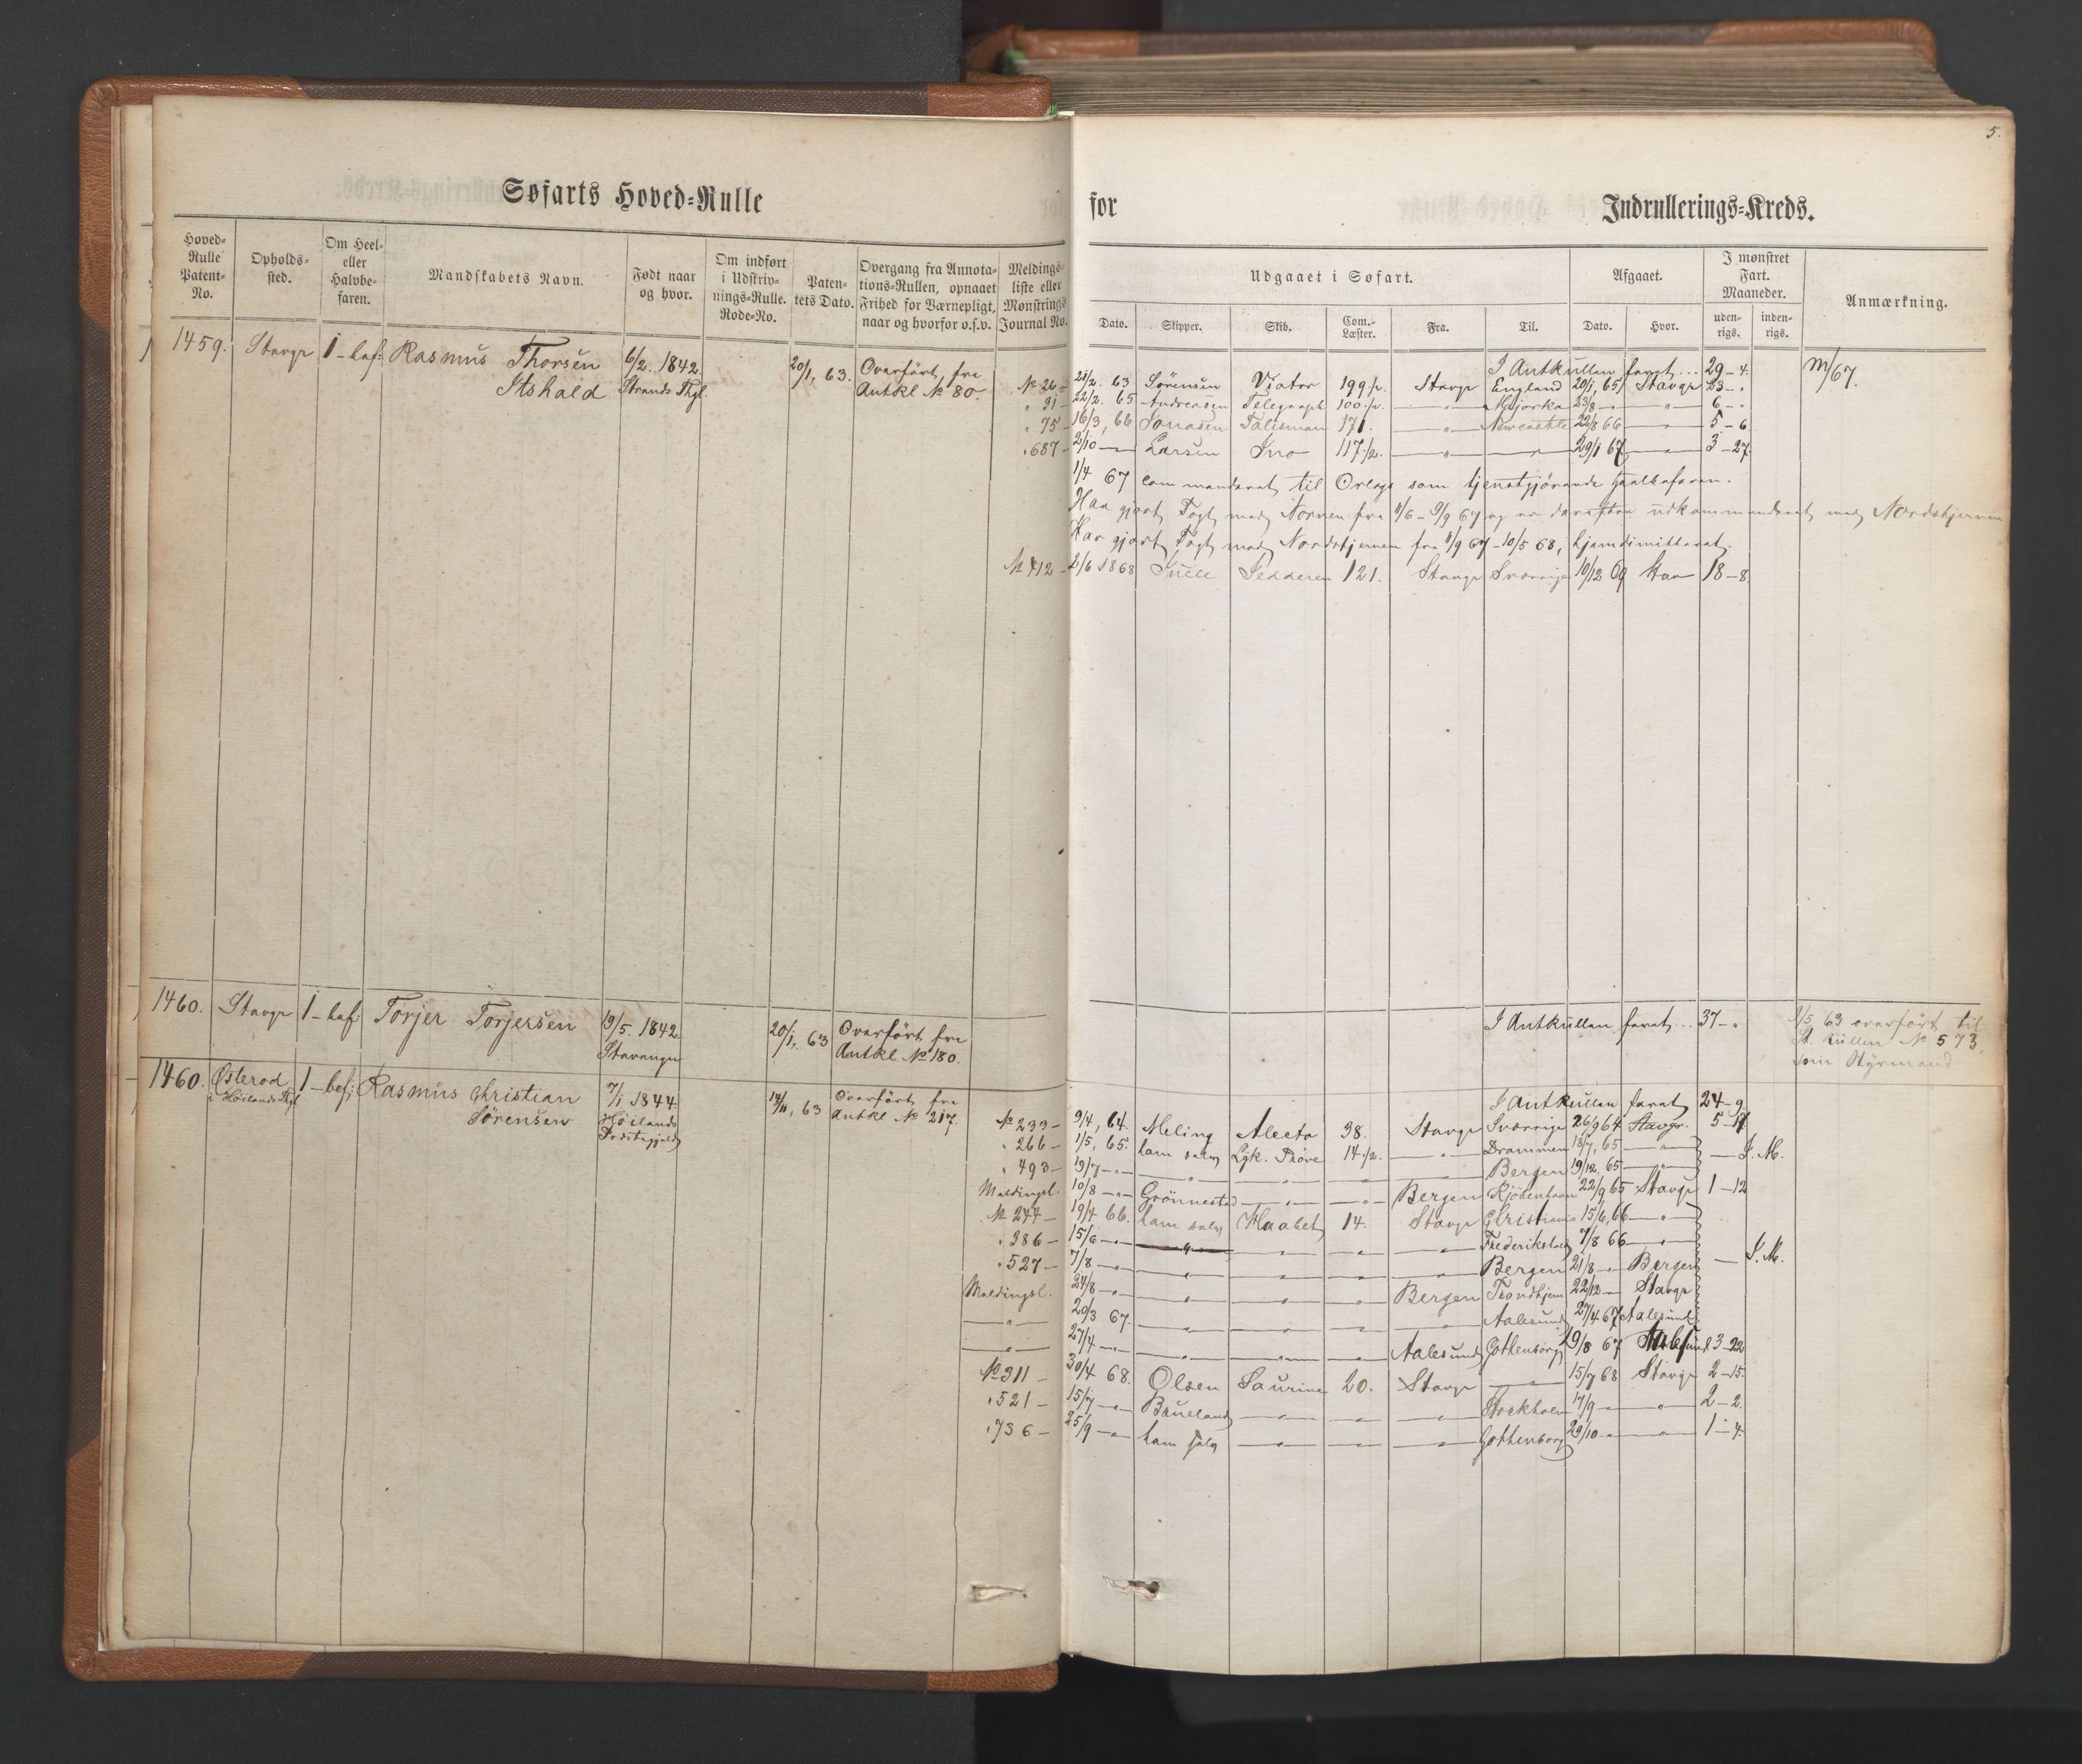 5.
Søfarts Hoved-Rulle for Indrullerings-Kreds.
Hoved-Rulle Patent-No.
Opholds-sted.
Om Heel- eller Halvbe-faren.
Mandskabets Navn.
Født naar og hvor.
Om indført i Udskriv-nings-Rulle. Rode-No.
Paten-tets Dato.
Overgang fra Annota-tions-Rullen, opnaaet Frihed for Værnepligt, naar og hvorfor o.s.v.
Meldings-liste eller Mønstrings Journal No.
Udgaaet i Søfart.
Afgaaet.
I mønstret Fart. Maaneder.
Anmærkning.
Dato. Skipper. Skib. Com.-Læster. Fra. Til. Dato. Hvor. uden-rigs. inden-rigs.
1459. Stavgr 1-bef: Rasmus Thorsen 6/2. 1842. 20/1, 63. Overført fra
Strands Thgl. Antkl № 80.
I Antkullen faret ... 29-4. M/67.
№ 26- 21/2. 63 Sørensen Viator 199 1/2. Stavgr England 20/1, 65 Stavgr 23-"
" 31- 22/2. 65 Andreasen Telegraph 100 1/2. " 23/8 " " 6-"
" 75- 16/3, 66 Jonasen Talisman 171. " Newcastle 22/8 66 " 5-6
" 687- 2/10 " Larsen Ino 117 1/2. " " 29/1 67 " 3-27
1/4 67 commanderet til Orlogs som tjenstgjørende
Har gjort Togt med Nornen fra 1/6 - 9/9 67 og er derefter udkommanderet med Nordstjernen
Har gjort Togt med Nordstjernen fra 1/9 67 - 10/5 68, hjemdimitteret.
№ 412- 2/6 1868 Juell 121. Stavgr Sverrige 10/12 69 18-8
1460. Stavgr 1-bef: Torjer Torjersen 19/5. 1842. 20/1, 63 Overført fra
Stavanger Antkl № 180.
I Antkullen faret ... 37-" 63 overført til
St. Rullen № 573,
som Styrmand
1460. Østerod 1-bef: Rasmus Christian 7/1 1844. 14/11, 63 Overført fra
i Høilands Thgl Sørensen Høilands Antkl № 217.
Præstegjeld
I Antkullen faret 24-9
№ 233- 9/4, 64. Meling Alecto 38. Stavgr Sverrige 26/9 64 Stavgr. 5-17
" 266- 1/5, 65. ham selv Lyk. Prøve 14 1/2. " Drammen 18/7, 65 " - I. M.
" 493- 19/7 " " " " " Bergen 19/12, 65 "
Meldingsl. 10/8 " Grønnestad " " Bergen Kjøbenhavn 22/9, 65 Stavgr 1-12
№ 244- 19/4 66. ham selv Haabet 14. Stavgr Christiania 15/6, 66 "
" 386- 15/6 " " " " " Frederikstad 7/8 66 "
" 527- 7/8 " " " " " Bergen 21/8 " Bergen - I. M.
Meldingsl. 24/8 " " " " Bergen Trondhjem 22/12 " Stavgr
" 20/3 67. " " " " Aalesund 27/4 67 Aalesund
" 27/4 " " " " Aalesund Gothenborg 19/8 67 3-22
№ 311- 30/4 68. Olsen Laurine 20. Stavgr " 15/7 68 Stavgr 2-15.
" 521- 15/7 " Brueland " " " Stockholm 17/9 " " 2-2.
" 736- 25/9 " ham selv " " " Gothenborg 29/10 " " 1-4.